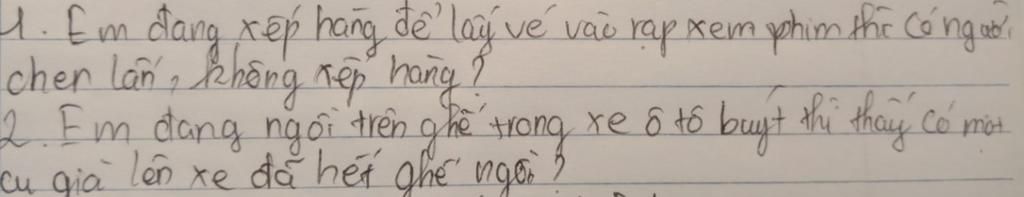 1. Em đang xếp hàng để lấy vé vào rạp xem phim thì có người
chen lấn, không xếp hàng?
2. Em đang ngồi trên ghế trong xe ô tô buýt thì thấy có một
cụ già lên xe đã hết ghế ngồi?